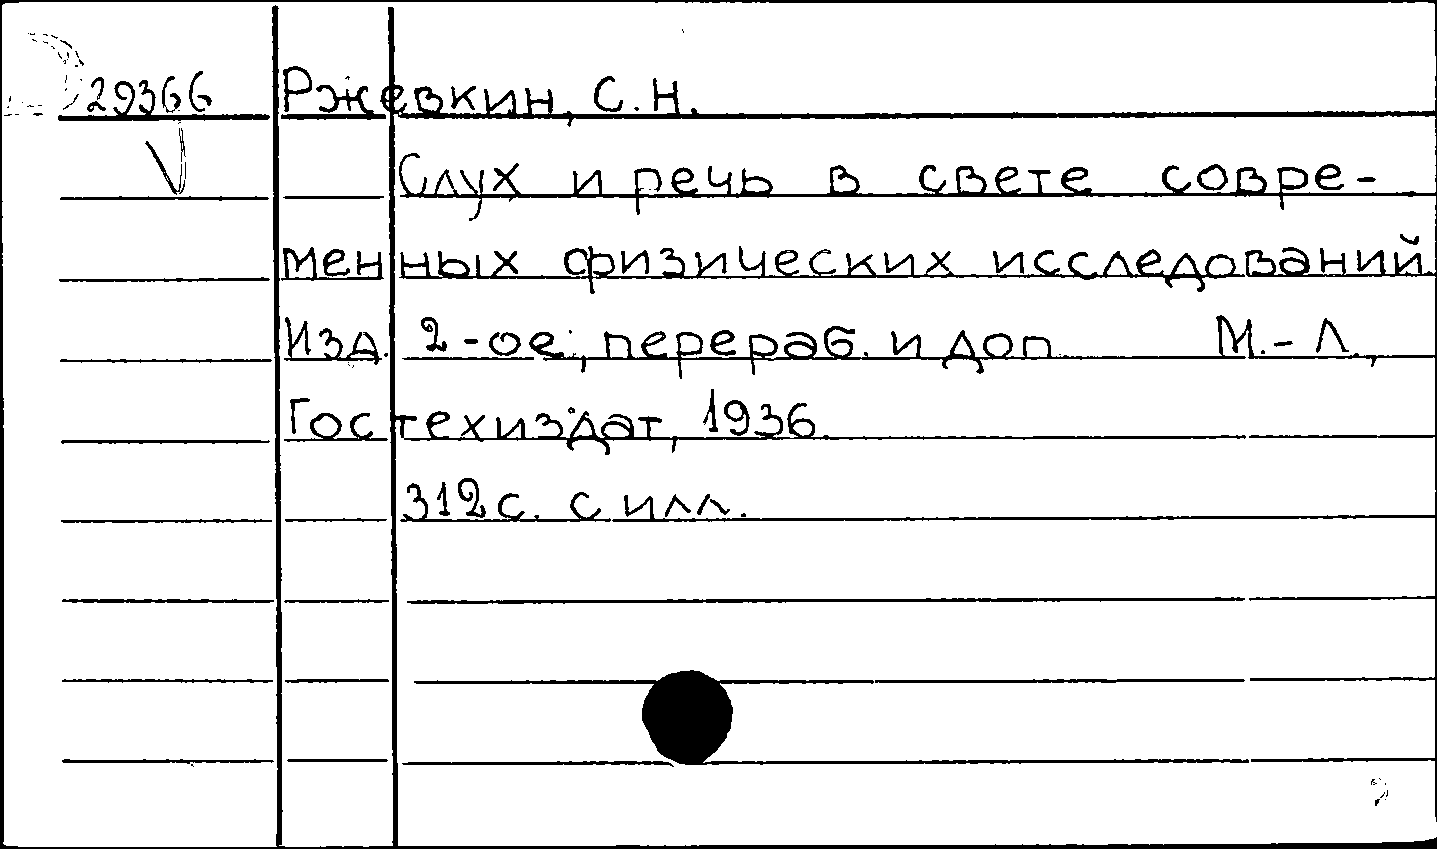 29366 Ржевкин, С.Н.
V
Слух и речь в свете совре-
менных физических исследований.
Изд. 2-ое, перераб. и доп М.-Л.,
Гостехиздат, 1936.
312с. с илл.